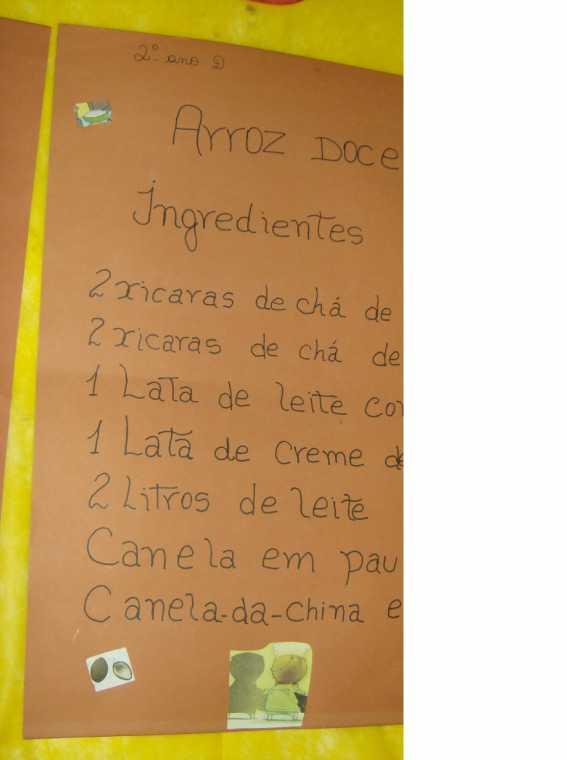 2º ano D
Arroz Doce
Ingredientes
2 xicaras de chá de
2 xicaras de chá de
1 Lata de leite con
1 Lata de creme de
2 Litros de leite
Canela em pau
Canela-da-china e